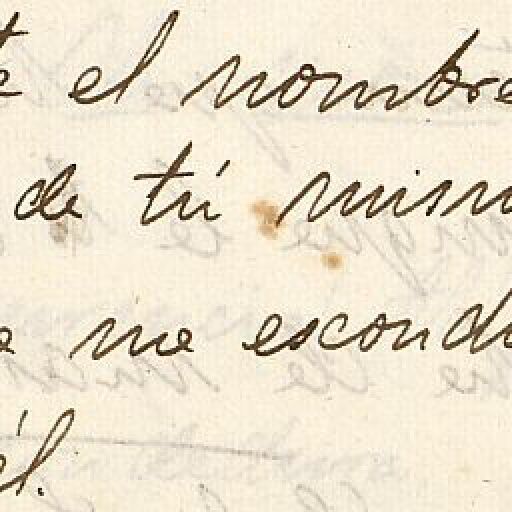 el nombre
de tú mism
me escond
él.